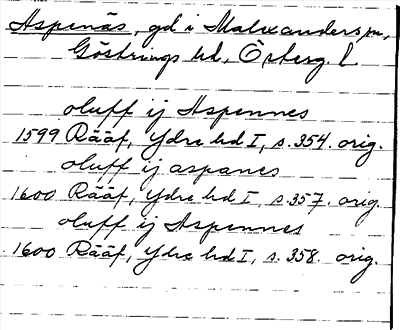 Aspenäs, gd i Malexanders sn,
Göstrings hd, Österg. l
oluff ij Aspennes
1599 Rääf, Ydre hd I, s. 354. orig.
oluff ij aspanes
1600 Rääf, Ydre hd I, s. 357. orig.
oluff ij Aspennes
1600 Rääf, Ydre hd I, s. 358. orig.